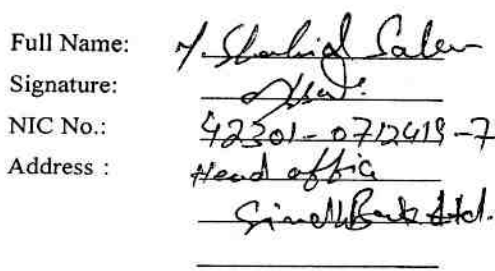 Full Name: M. Shahid Salem
Signature:
NIC No.: 42301-0712419-7
Address : Head offic
Sindh Bank Ltd.